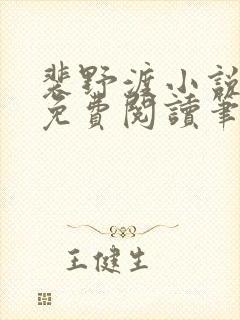 裴野渡小說
免費閱讀筆
王健生